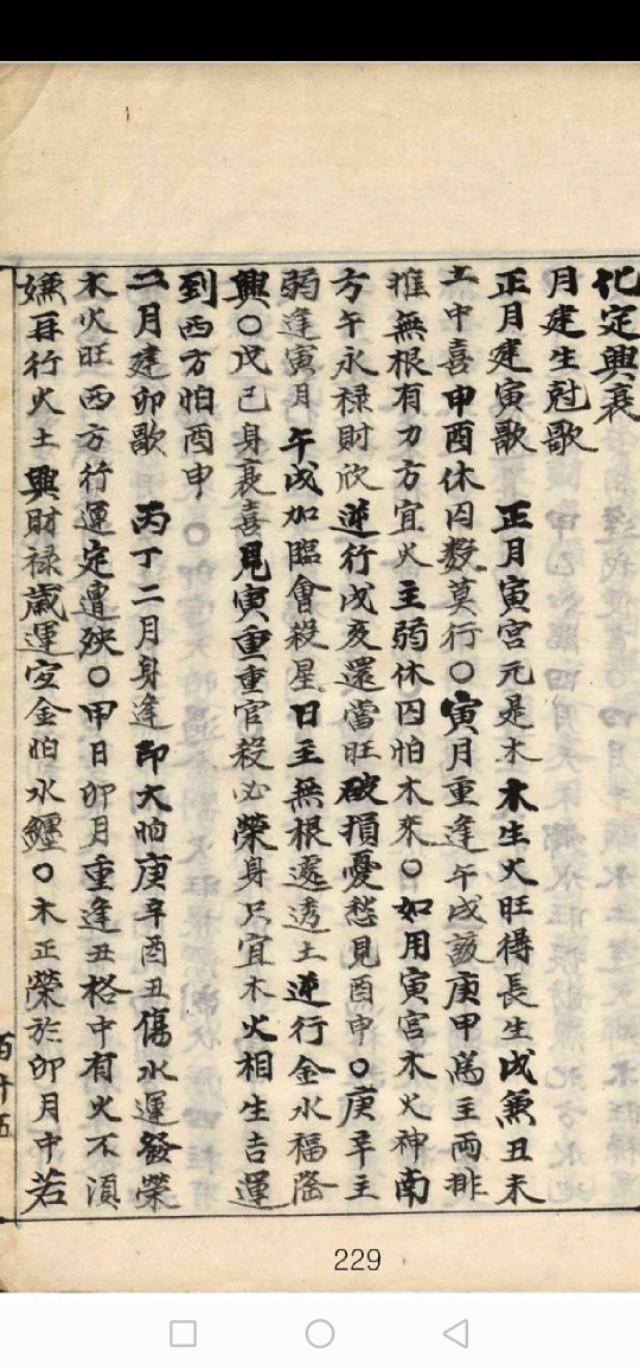 化定興衰
月建生尅歌
正月建寅歌　正月寅宮元是木木生火旺得長生戌兼丑未
土中喜申酉休囚數莫行○寅月重逢午戌該庚甲為主兩排
推無根有力方宜火主弱休囚怕木來○如用寅宮木火神南
方午永祿財欣逆行戌亥還當旺破損憂愁見酉申○庚辛主
弱逢寅月午戌加臨會殺星日主無根處透土逆行金水福隆
興○戊己身衰喜見寅重重官殺必榮身只宜木火相生吉運
到西方怕酉申
二月建卯歌　丙丁二月身逢印大怕庚辛酉丑傷水運發榮
木火旺西方行運定遭殃○甲日卯月重逢丑格中有火不須
嫌再行火土興財祿歲運安金怕水纏○木正榮於卯月中若
百十五
229